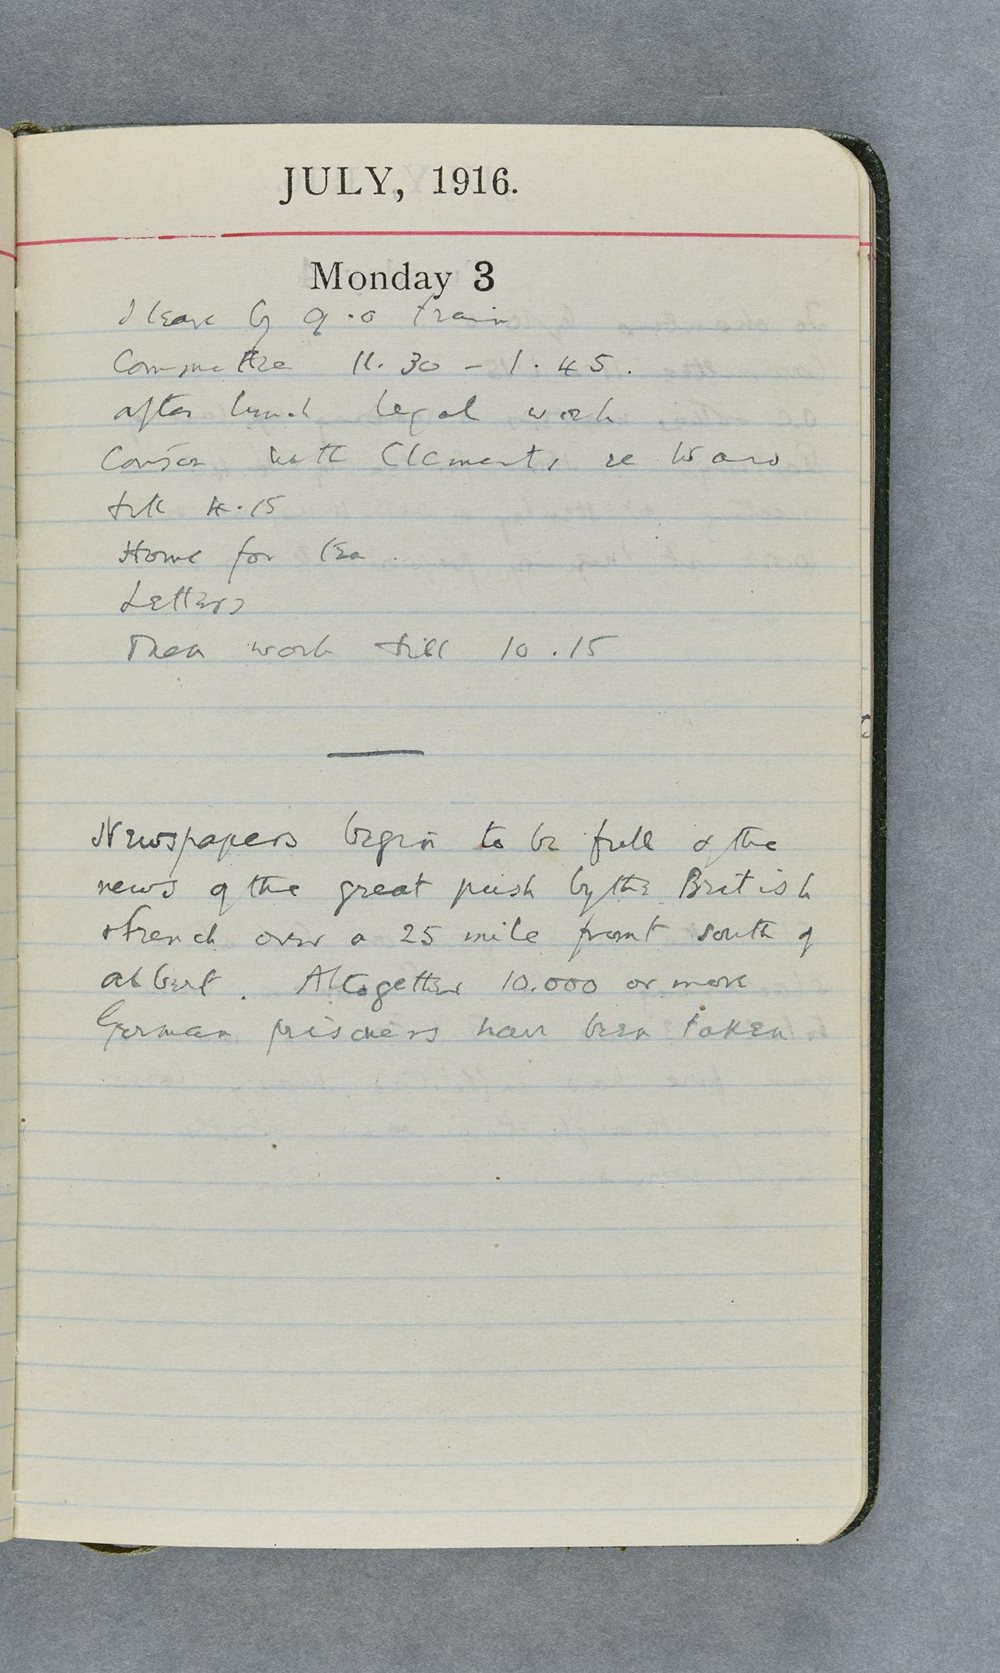 JULY, 1916.
Monday 3
I leave by 9.0 train
Committee 11.30 - 1.45.
after lunch legal work
Confer with Clements re
till 4.15
Home for tea.
Letters
Then work till 10.15
Newspapers begin to be full of the
news of the great push by the British
& French over a 25 mile front south of
Albert. Altogether 10.000 or more
German prisoners have been taken.